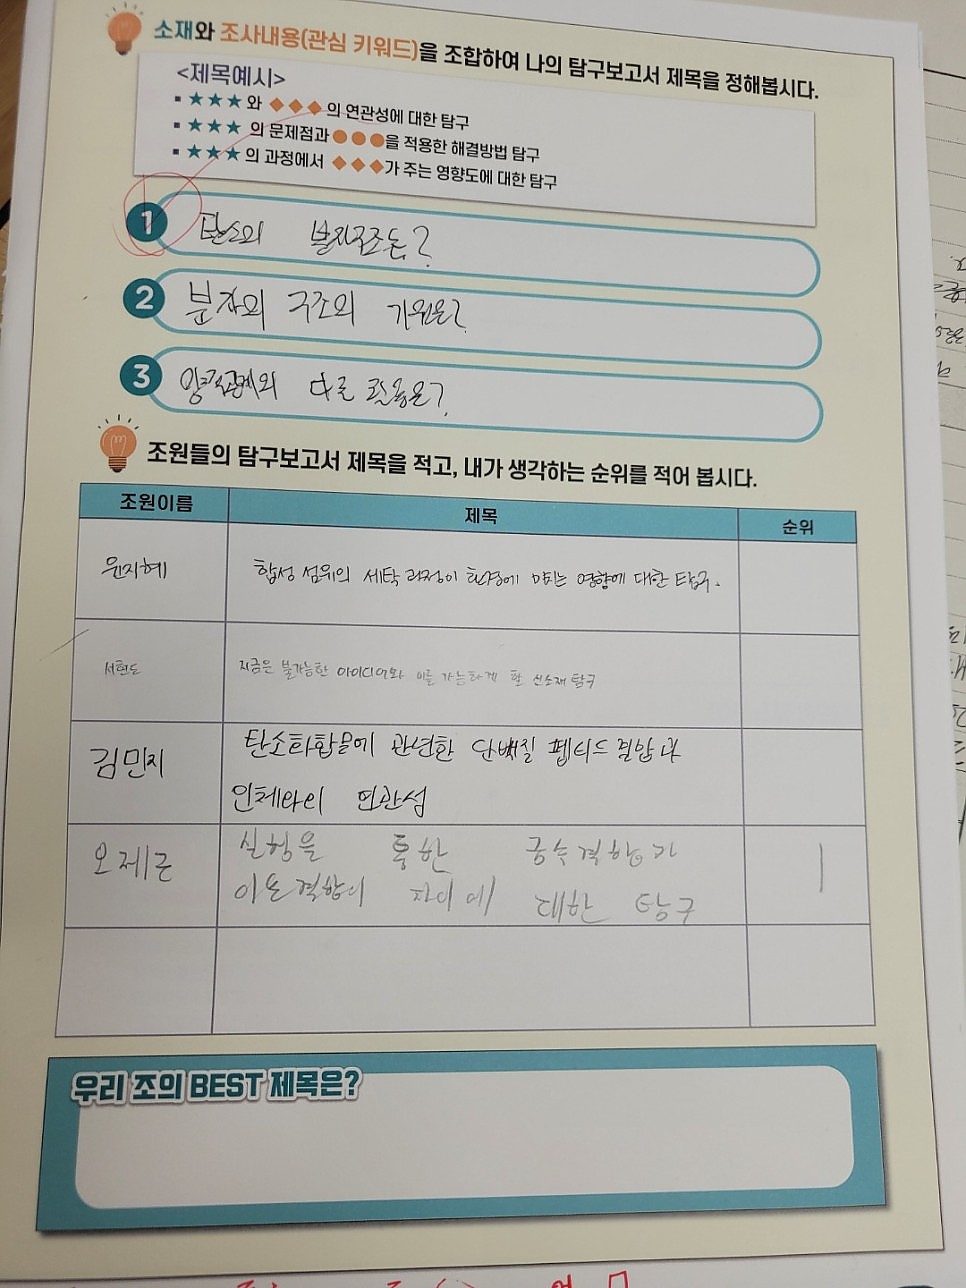 소재와 조사내용(관심 키워드)을 조합하여 나의 탐구보고서 제목을 정해봅시다.
<제목예시>
▪ ★★★와 ◆◆◆의 연관성에 대한 탐구
▪ ★★★의 문제점과 ●●●을 적용한 해결방법 탐구
▪ ★★★의 과정에서 ◆◆◆가 주는 영향도에 대한 탐구
1 탄소의 분자구조는?
2 분자의 구조의 기원은?
3 양적관계의 다른 활용은?
조원들의 탐구보고서 제목을 적고, 내가 생각하는 순위를 적어 봅시다.
조원이름 제목 순위
윤지혜 합성 섬유의 세탁 과정이 환경에 미치는 영향에 대한 탐구.
지금은 불가능한 아이디어와 이를 가능하게 할 신소재 탐구
김민지 탄소화합물에 관련한 단백질 펩티드 결합과
인체와의 연관성
오제근 실험을 통한 공유결합과
이온결합의 차이에 대한 탐구 1
우리 조의 BEST 제목은?